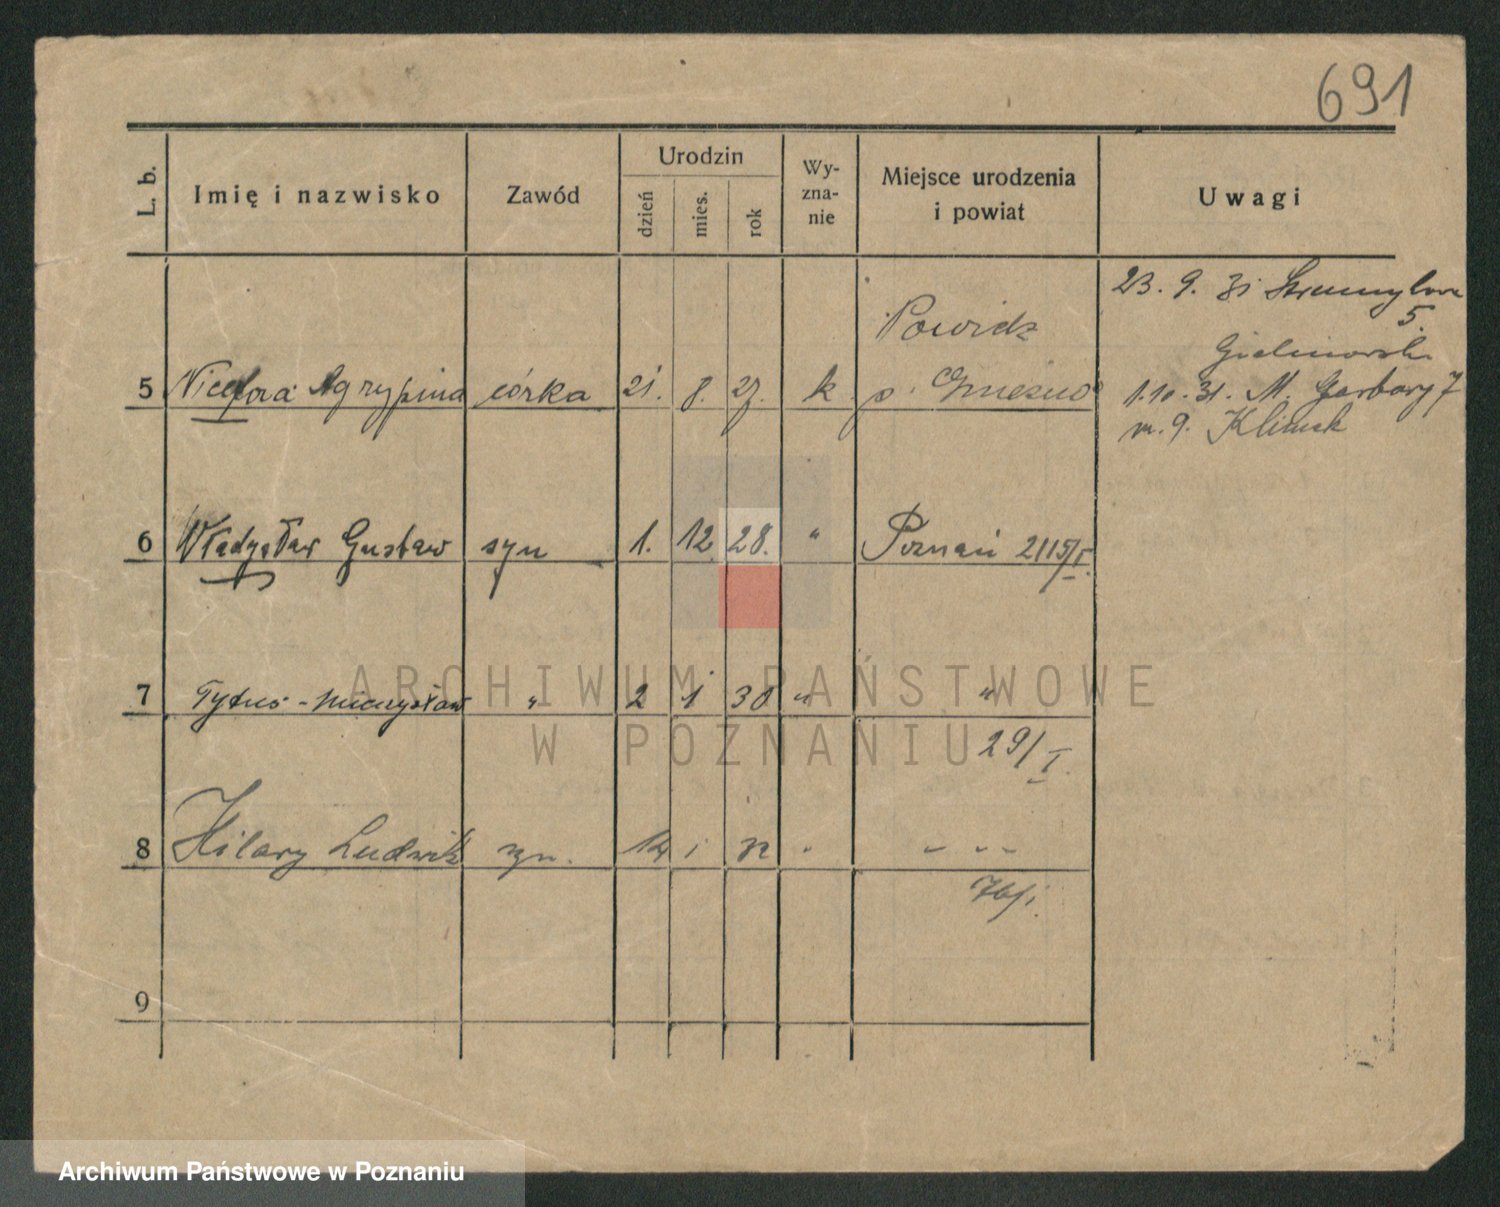 691
L. b.
Imię i nazwisko
Zawód
Urodzin
dzień
mies.
rok
Wy-
zna-
nie
Miejsce urodzenia
i powiat
Uwagi
23. 9. 31
5.
Powidz
5 Agrypina córka 21. 8. 27. k p. Gniezno
1.10.31. M. Garbary 7
m. 9. Klimek
6 Władysław Gustaw syn 1. 12. 28. " Poznań 2115/I
7 Tytus - Mieczysław " 2 1 30 " "
29/I.
8 Hilary Ludwik syn. i 32 " " "
76/i
9
ARCHIWUM PAŃSTWOWE
W POZNANIU
Archiwum Państwowe w Poznaniu